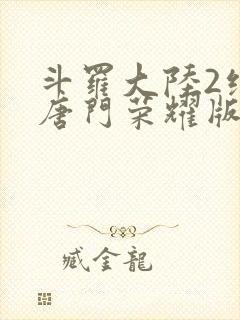 斗羅大陸2
唐門榮耀版
臧金龍